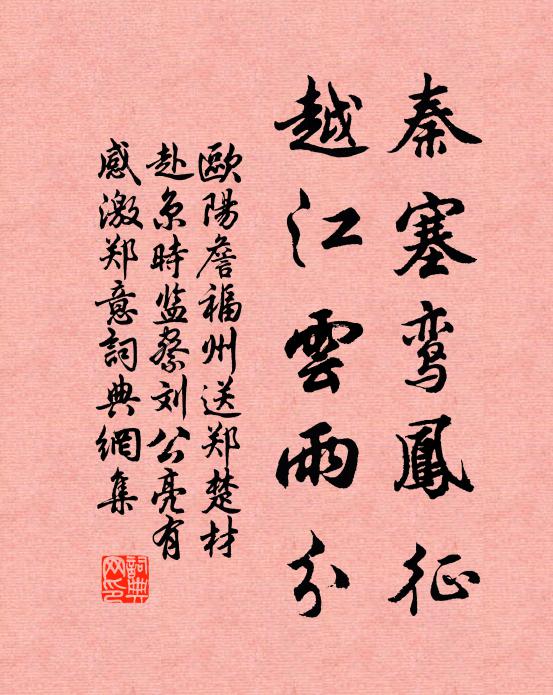 秦塞鸾鳳征
越江雲雨分
歐陽詹福州送郑楚材
赴京時监察刘公亮有
感激郑意詞典網集
詞典网印